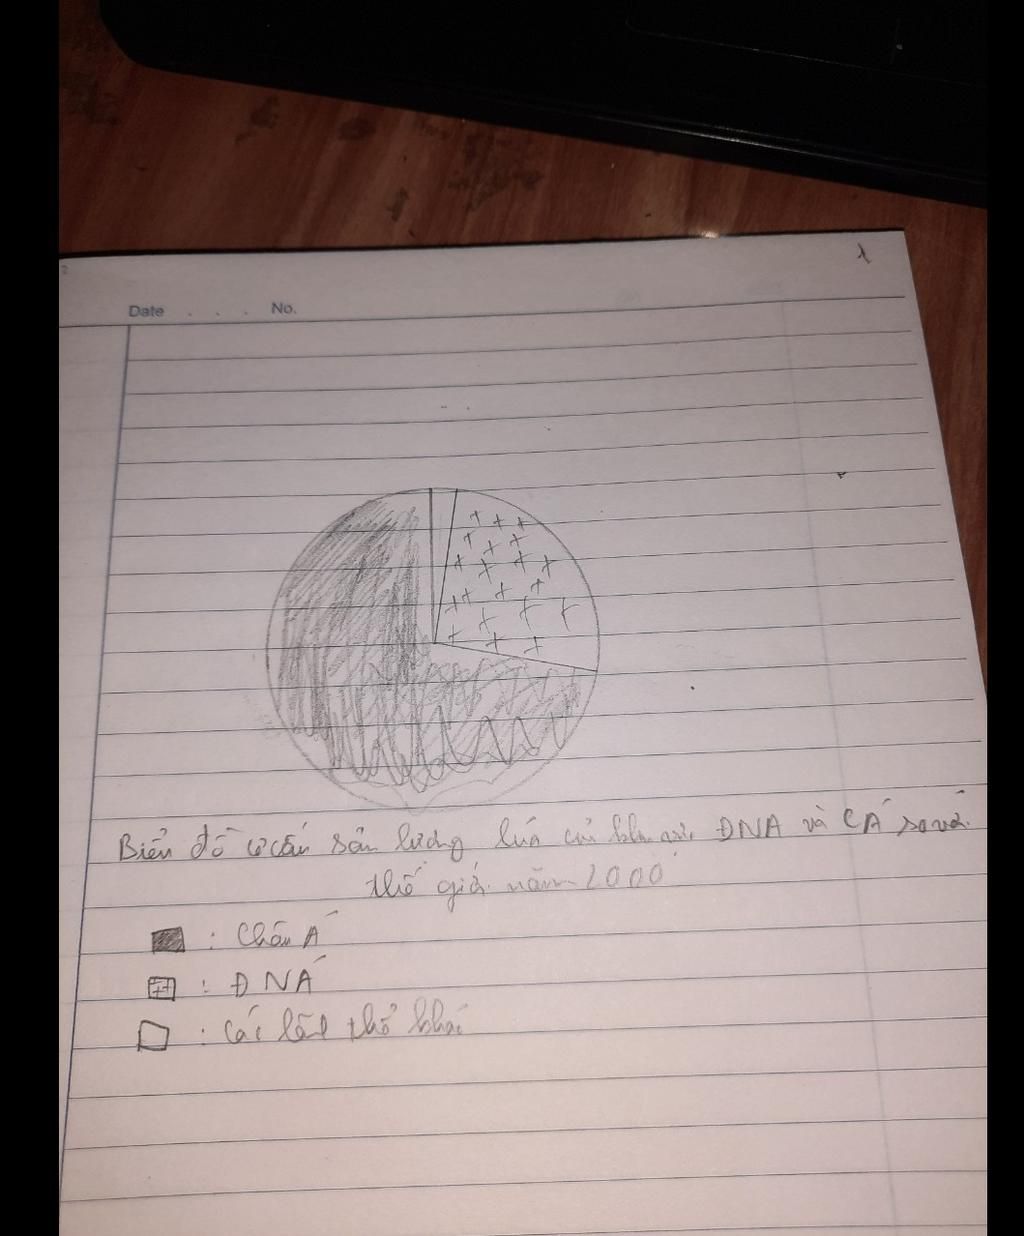 1
2
Date . . . No.
Biểu đồ cơ cấu sản lượng lúa của khu vực ĐNA và CÁ so với
thế giới năm 2000
: Châu Á
: ĐNÁ
: Các lãnh thổ khác